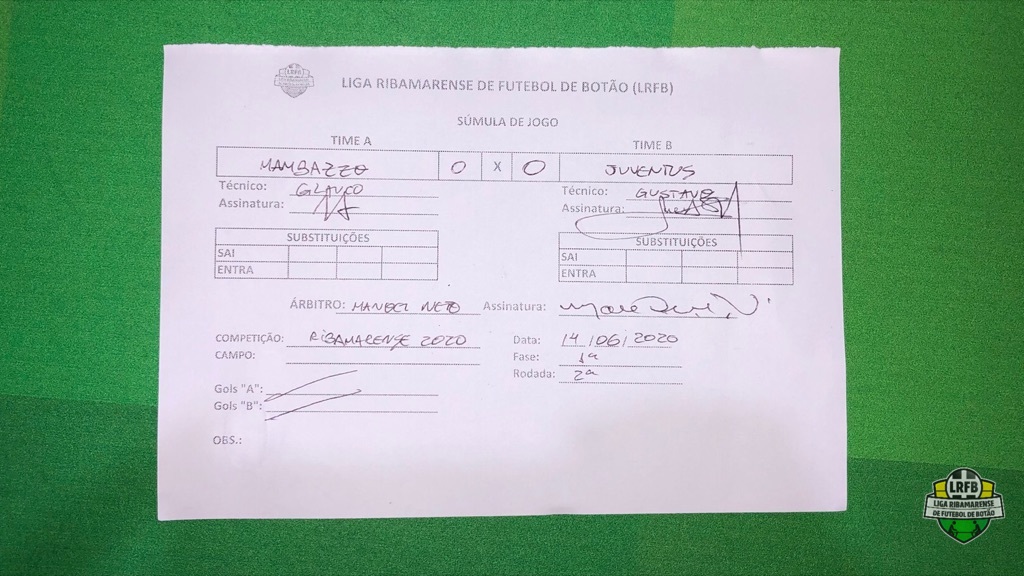 LRFB
LIGA RIBAMARENSE DE FUTEBOL DE BOTÃO (LRFB)
SÚMULA DE JOGO
TIME A TIME B
MAMBAZZO 0 X 0 JUVENTUS
Técnico: GLAUCO Técnico: GUSTAVO
Assinatura: Assinatura:
SUBSTITUIÇÕES SUBSTITUIÇÕES
SAI SAI
ENTRA ENTRA
ÁRBITRO: MANOEL NETO Assinatura:
COMPETIÇÃO: RIBAMARENSE 2020 Data: 14/06/2020
CAMPO: Fase: 1ª
Rodada: 2ª
Gols "A":
Gols "B":
OBS.:
LRFB
LIGA RIBAMARENSE
DE FUTEBOL DE BOTÃO